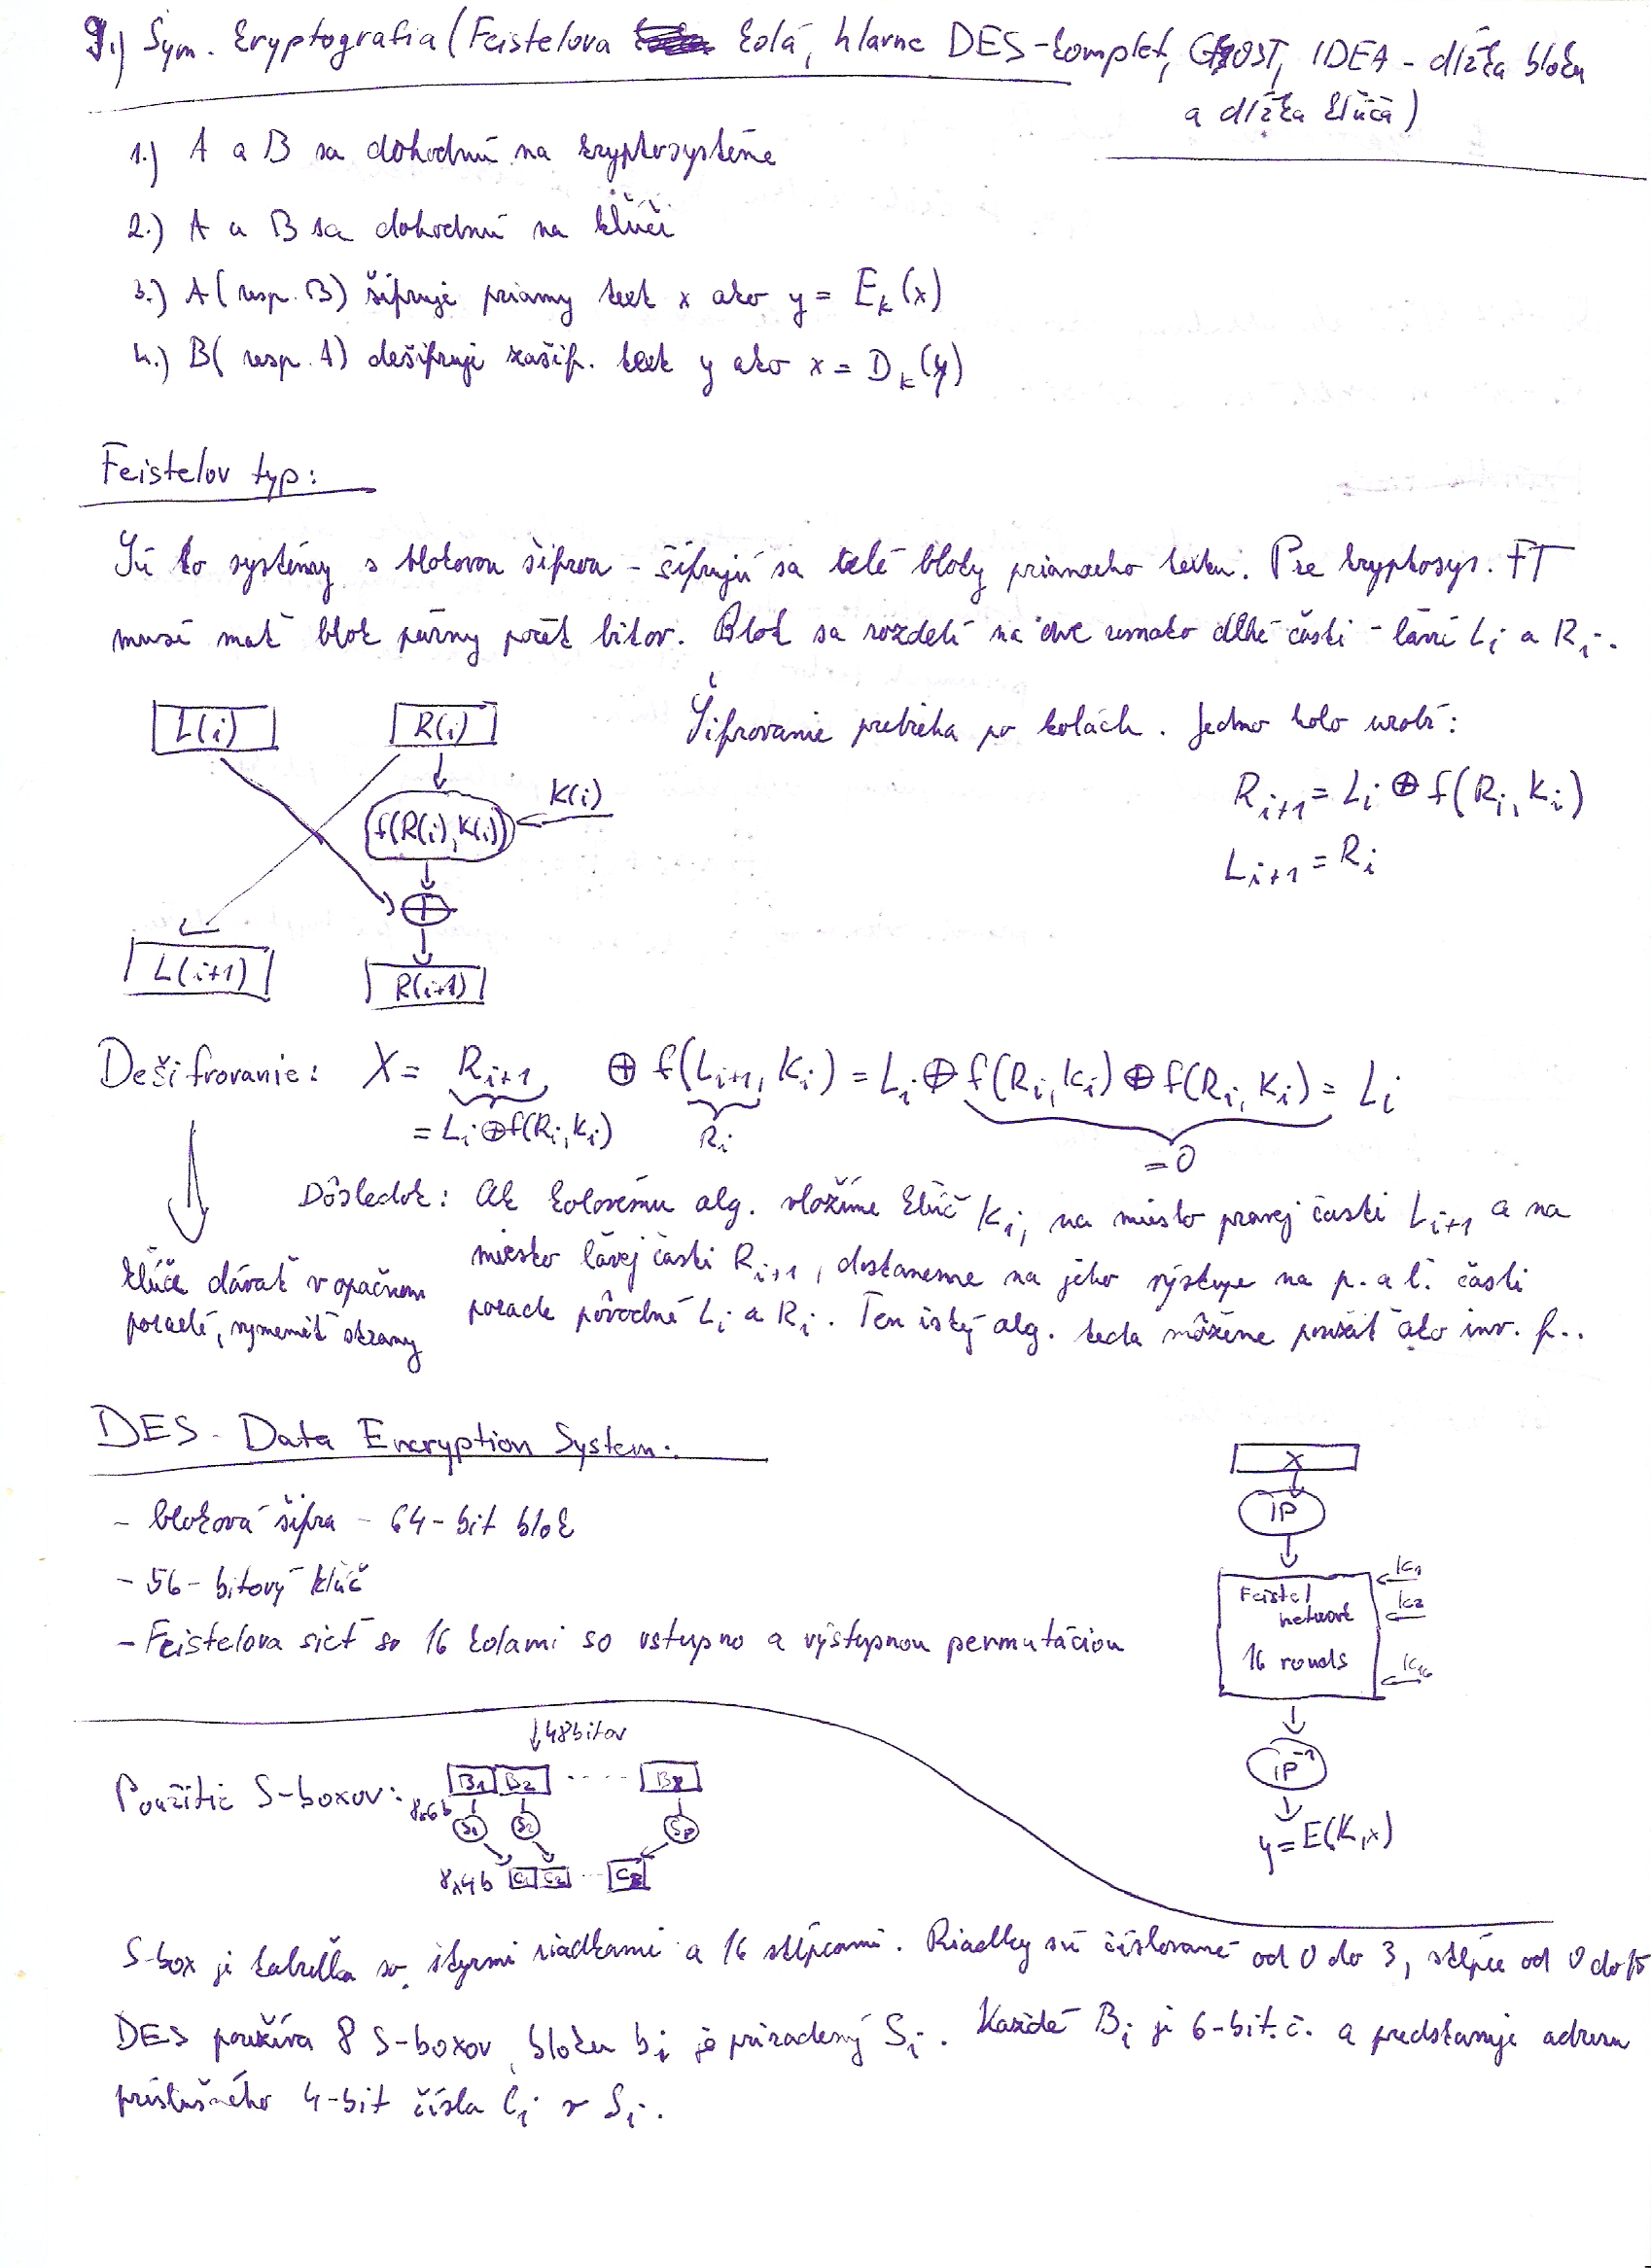 9.) Sym. kryptografia (Feistelova kolá, hlavne DES-komplet, GHOST, IDEA - dĺžka bloku
a dĺžka kľúča)
1.) A a B sa dohodnú na kryptosystéme
2.) A a B sa dohodnú na kľúči
3.) A (resp. B) šifruje priamy text x ako y = E_k(x)
4.) B (resp. A) dešifruje zašif. text y ako x = D_k(y)
Feistelov typ:
Sú to systémy s blokovou šifrou - šifrujú sa celé bloky priameho textu. Pre kryptosys. FT
musí mať blok párny počet bitov. Blok sa rozdelí na dve rovnako dlhé časti - Lí L_i a R_i.
L(i) R(i)
Šifrovanie prebieha po kolách. Jedno kolo urobí:
K(i)
R_{i+1} = L_i ⊕ f(R_i, K_i)
f(R(i), K(i))
L_{i+1} = R_i
⊕
L(i+1) R(i+1)
Dešifrovanie: X = R_{i+1} ⊕ f(L_{i+1}, K_i) = L_i ⊕ f(R_i, K_i) ⊕ f(R_i, K_i) = L_i
= L_i ⊕ f(R_i, K_i) R_i = 0
Dôsledok: Ak kolovému alg. vložíme kľúč K_i, na miesto pravej časti L_{i+1} a na
miesto ľavej časti R_{i+1}, dostaneme na jeho výstupe na p. a ľ. časti
porade pôvodné L_i a R_i. Ten istý alg. teda môžeme použiť ako inv. f..
kľúče dávať v opačnom
poradí, vymeniť strany
DES - Data Encryption System:
- bloková šifra - 64-bit blok
- 56-bitový kľúč
- Feistelova sieť so 16 kolami so vstupno a výstupnou permutáciou
X
IP
Feistel
network
16 rounds
K1
K2
K16
IP⁻¹
y = E(K,x)
↓48bitov
Použitie S-boxov: 8x6b B1 B2 ..... B8
S1 S2 S8
8x4b C1 C2 ... C8
S-box je tabuľka so štyrmi riadkami a 16 stĺpcami. Riadky sú číslované od 0 do 3, stĺpce od 0 do 15
DES používa 8 S-boxov, bloku b_i je priradený S_i. Každé B_i je 6-bit. č. a predstavuje adresu
príslušného 4-bit čísla C_i v S_i.